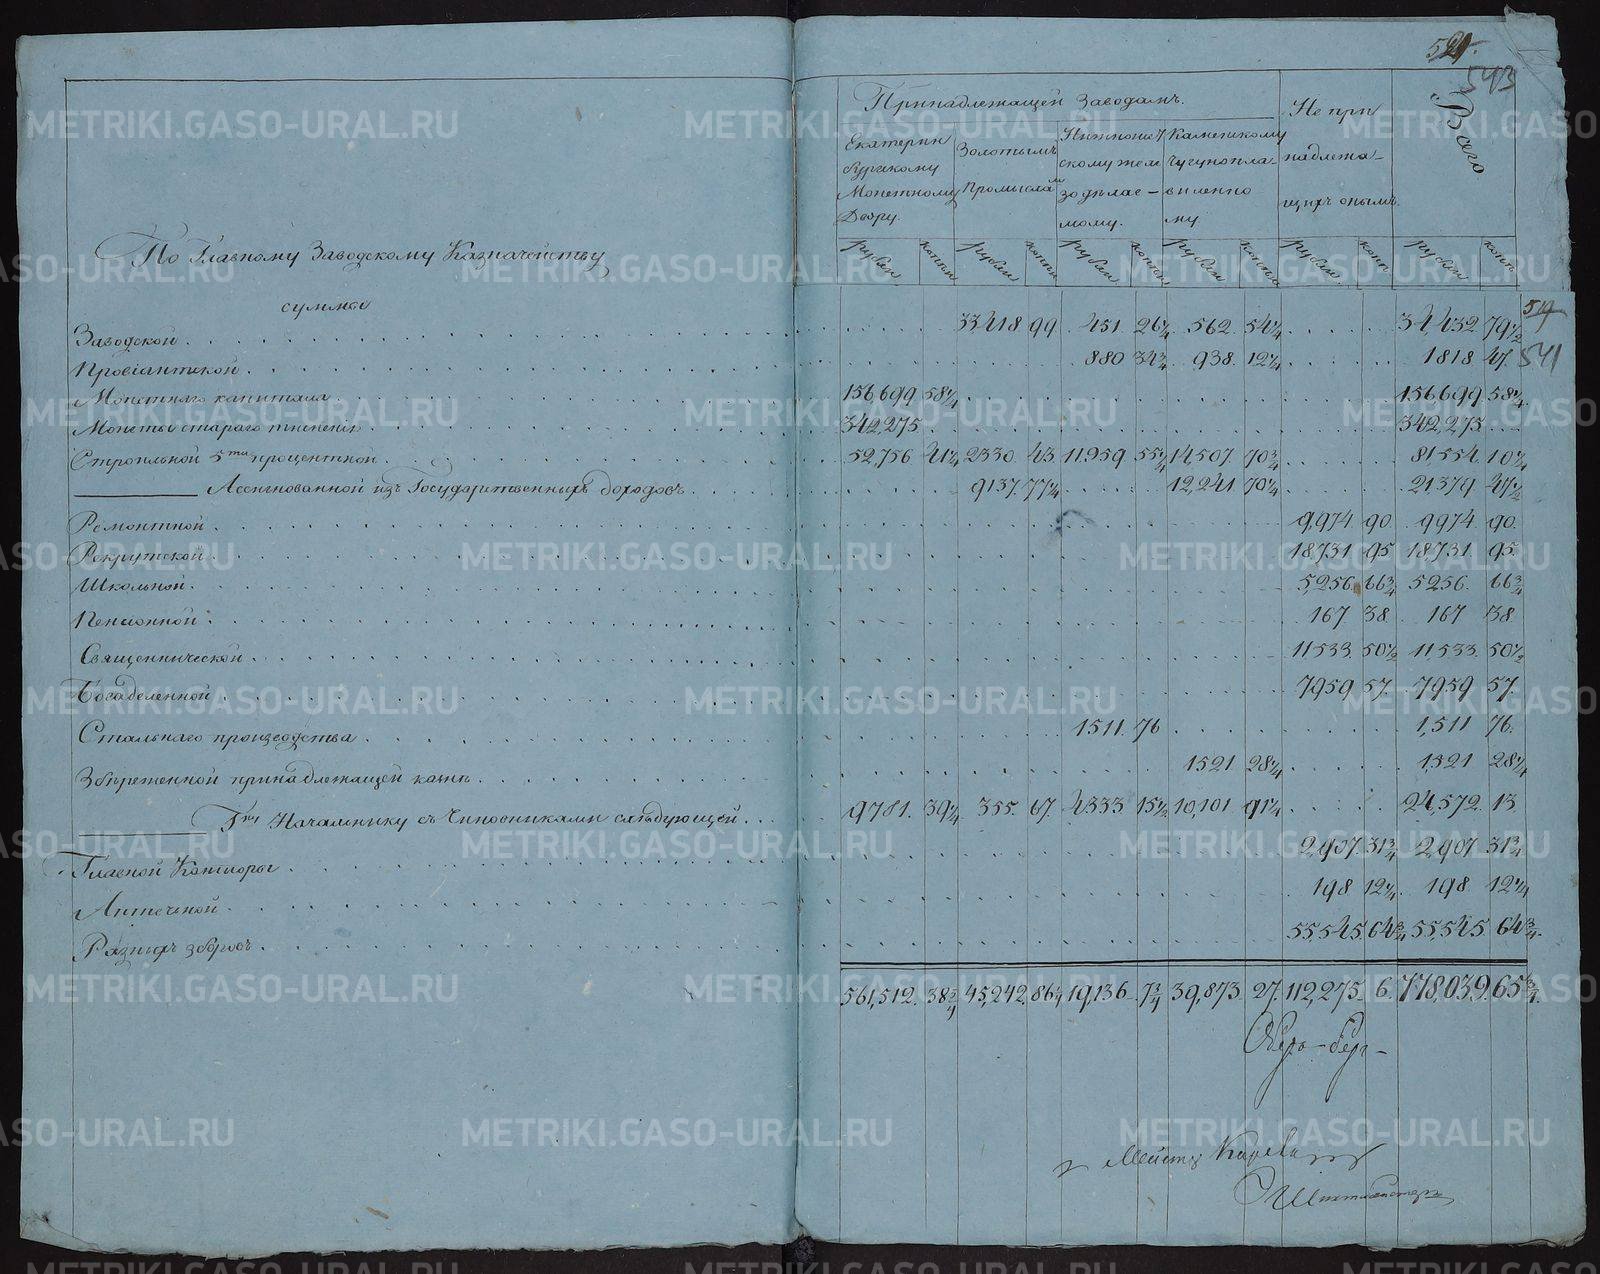 521.
543
Принадлежащей Заводамъ.
Не принадлежащихъ онымъ.
Всего
Екатеринбургскому Монетному Двору.
Золотымъ Промысламъ
Нижнеисетскому железоделаемому.
Каменскому чугуноплавиленному
рубли копѣи рубли копѣи рубли копѣи рубли копѣи рубли копѣи рубли копѣи
По Главному Заводскому Казначейству
суммы
Заводской 33418 99 451 26¼ 562 54¼ 34,432 79½
519
541
Провіантской 880 34¾ 938 12¼ 1818 47
Монетнаго капитала 156,699 58¼ 156,699 58¼
Монеты стараго тисненія 342,275 342,275
Строильной 5ти процентной 52,756 41¼ 2330 43 11,959 55¼ 14,507 70¾ 81,554 10¼
Ассигнованной изъ Государственныхъ доходовъ 9137 77¼ 12,241 70¼ 21,379 47½
Ремонтной 9,974 90 9974 90
Рекрутской 18,731 95 18,731 95
Школьной 5,256 66¾ 5256 66¾
Пенсионной 167 38 167 38
Священнической 11,533 50½ 11,533 50½
Богаделенной 7959 57 7959 57
Стальнаго производства 1511 76 1,511 76
Збереженной принадлежащей казнѣ 1521 28¼ 1,521 28¼
Гну Начальнику съ Чиновниками слѣдующей 9781 39¼ 355 67 4333 15½ 10,101 91¼ 24,572 13
Главной Конторы 2,907 31¾ 2,907 31¾
Аптечной 198 12¼ 198 12¼
Разныхъ зборовъ 55,545 64¾ 55,545 64¾
561,512 38¾ 45,242 86¼ 19,136 7¾ 39,873 27 112,275 6 778,039 65¾
Оберъ-берг-
Мейстер
Шихтмейстеръ
METRIKI.GASO-URAL.RU